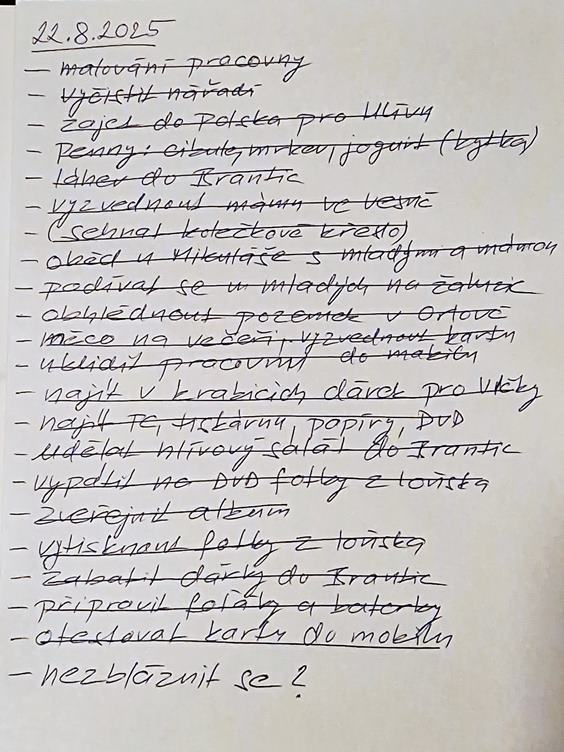 22.8.2025
– malování pracovny
– vyčistit nářadí
– zajet do Polska pro hlívu
– Penny: cibule, mrkev, jogurt (kytka)
– láhev do Krantic
– vyzvednout mámu ve vesnč
– (sehnat kolečkové křeslo)
– oběd u Mikuláše s mladými a mámou
– podívat se u mladých na žaluzie
– obhlédnout pozemek v Ortově
– něco na večeři, vyzvednout kartu
– uklidit pracovnu do mobilu
– najít v krabicích dárek pro Vlčky
– najít PC, tiskárnu, papíry, DVD
– udělat hlívový salát do Krantic
– vypálit na DVD fotky z loňska
– zveřejnit album
– vytisknout fotky z loňska
– zabalit dárky do Krantic
– připravit foťáky a baterky
– otestovat kartu do mobilu
– nezbláznit se?